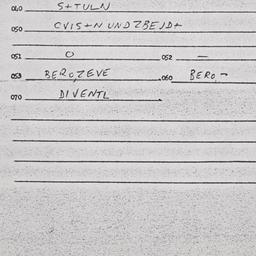 040 S+TULN
050 CVIS+N UNDZBEJD+
051 O 052 —
053 BEROZEVE 060 BERO -
070 DIVENTL